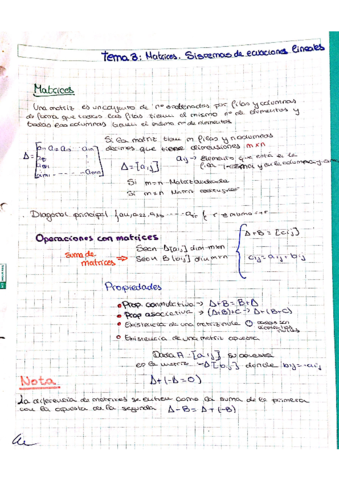 Tema 3: Matrices. Sistemas de ecuaciones lineales
Matrices
Una matriz es un conjunto de nº ordenados por filas y columnas
de forma que todas las filas tienen el mismo nº de elementos y
todas las columnas tienen el mismo nº de elementos
Si la matriz tiene m filas y n columnas
decimos que tiene dimensiones m×n
A=[aij] aij → elemento que está en la
Si m=n Matriz cuadrada
Si m≠n Matriz rectangular
· Diagonal principal
Operaciones con matrices
Suma de
matrices →
Sean A[aij] dim m×n
Sean B[bij] dim m×n
A+B=[cij]
cij=aij+bij
Propiedades
Prop conmutativa → A+B=B+A
Prop asociativa → (A+B)+C → A+(B+C)
Existencia de una matriz nula
Existencia de una matriz opuesta
Dada A=[aij] su opuesta
es la matriz -A[bij] donde bij=-aij
Nota
A+(-A=0)
La diferencia de matrices se define como la suma de la primera
con la opuesta de la segunda A-B=A+(-B)